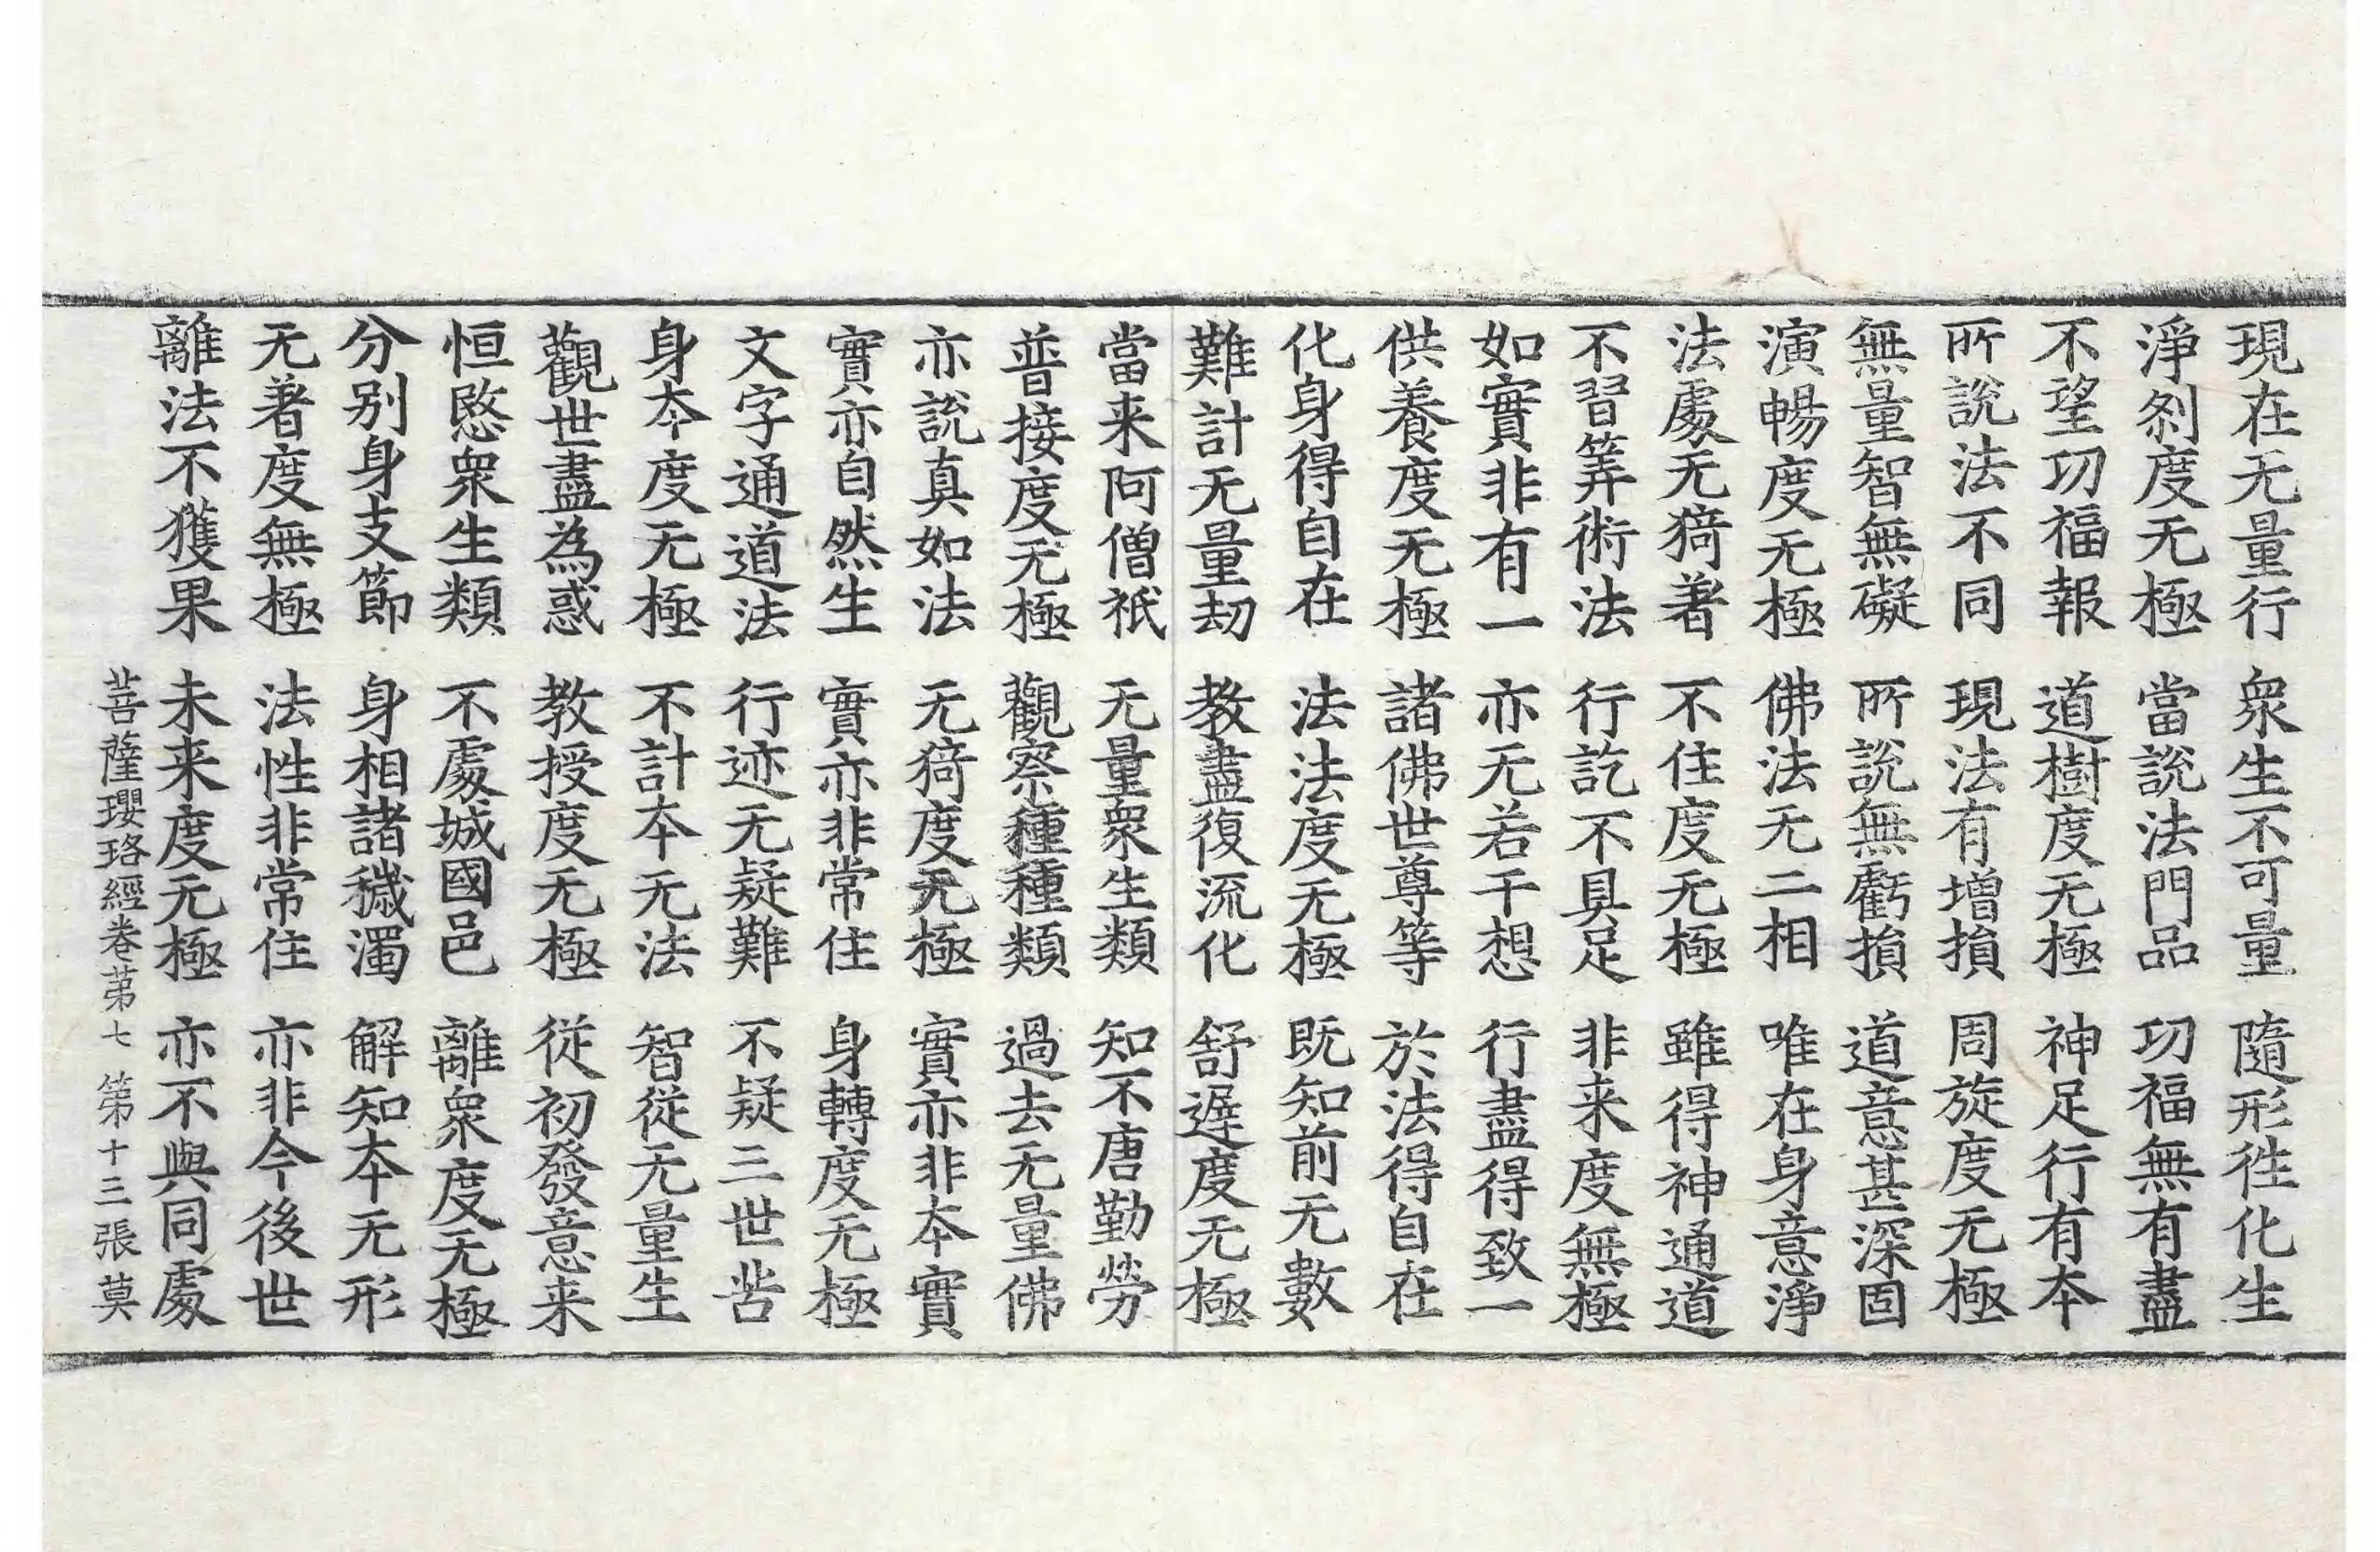 現在无量行 衆生不可量 隨形徃化生
淨刹度无極 當說法門品 功福無有盡
不望功福報 道樹度无極 神足行有本
所說法不同 現法有增損 周旋度无極
無量智無礙 所說無虧損 道意甚深固
演暢度无極 佛法无二相 唯在身意淨
法處无猗著 不住度无極 雖得神通道
不習筭術法 行訖不具足 非来度無極
如實非有一 亦无若干想 行盡得致一
供養度无極 諸佛世尊等 於法得自在
化身得自在 法法度无極 既知前无數
難計无量劫 教盡復流化 舒遲度无極
當来阿僧祇 无量衆生類 知不唐勤勞
普接度无極 觀察種種類 過去无量佛
亦說真如法 无猗度无極 實亦非本實
實亦自然生 實亦非常住 身轉度无極
文字通道法 行迹无疑難 不疑三世苦
身本度无極 不計本无法 智從无量生
觀世盡為惑 教授度无極 從初發意来
恒愍衆生類 不處城國邑 離衆度无極
分別身支節 身相諸穢濁 解知本无形
无著度無極 法性非常住 亦非今後世
離法不獲果 未来度无極 亦不與同處
菩薩瓔珞經卷苐七 第十三張 莫